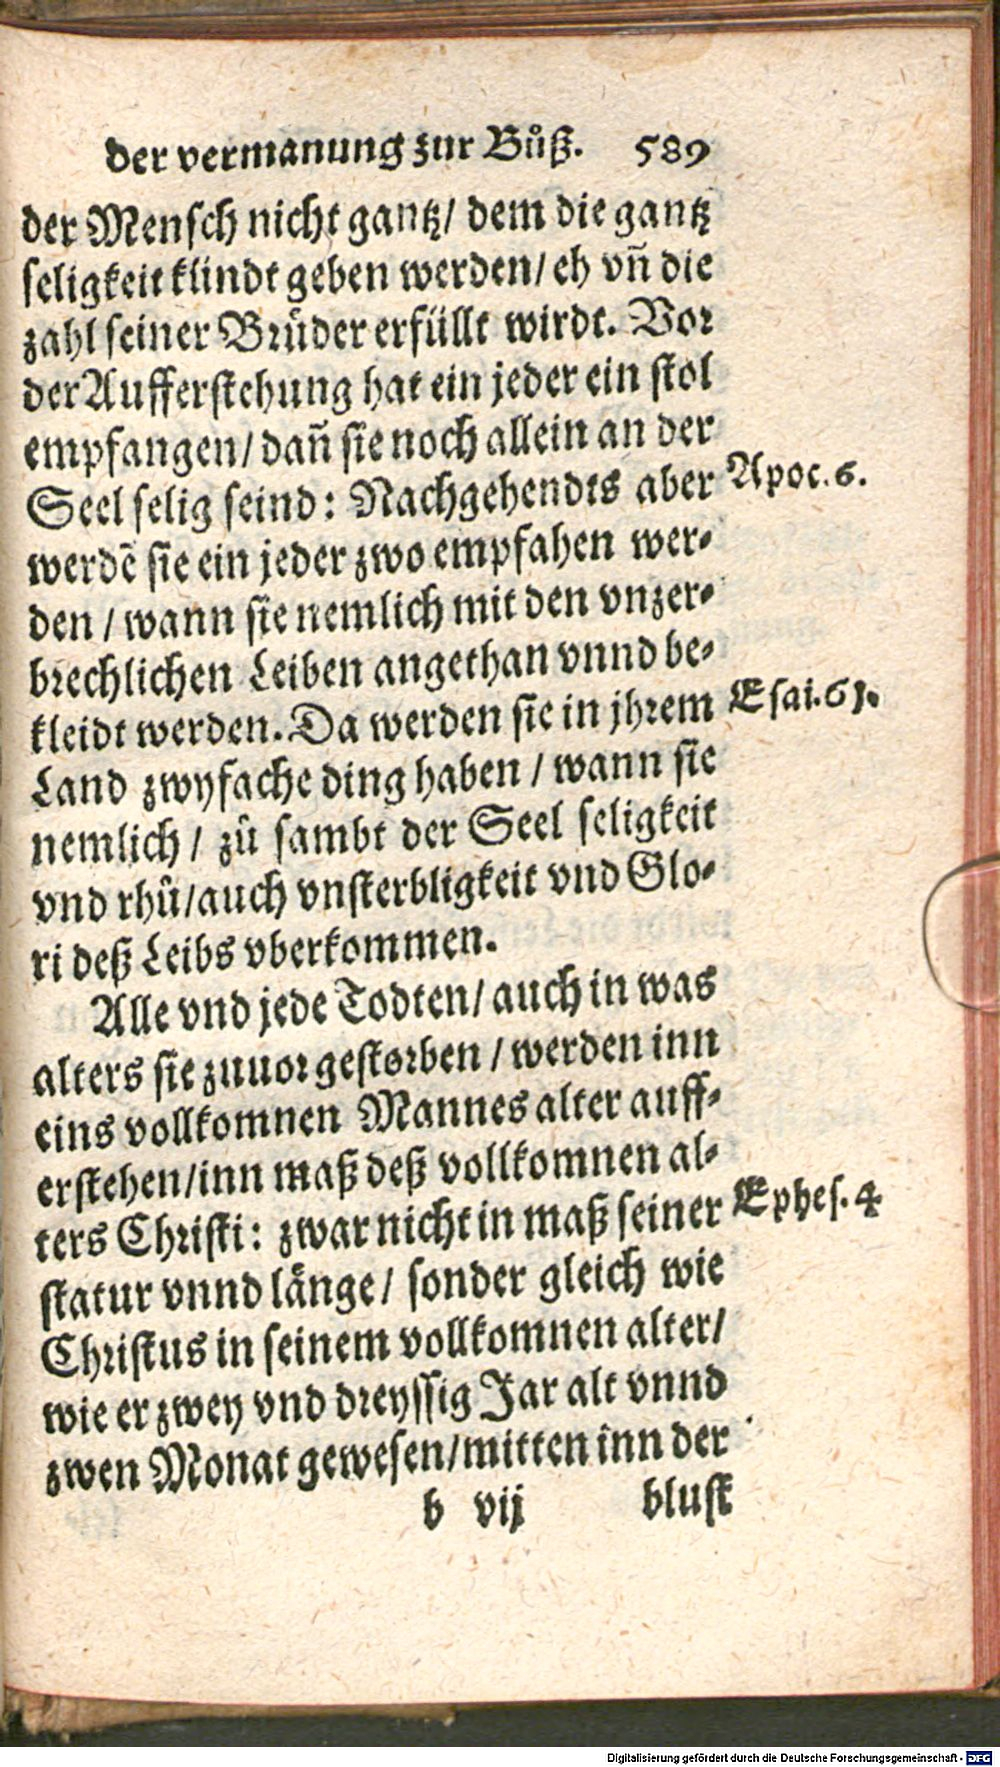 der vermanung zur Bůß. 589
der Mensch nicht gantz/ dem die gantz
seligkeit klindt geben werden/ eh vn̄ die
zahl seiner Brůder erfüllt wirdt. Vor
der Aufferstehung hat ein jeder ein stol
empfangen/ dan̄ sie noch allein an der
Seel selig seind: Nachgehendts aber
Apoc. 6.
werdē sie ein jeder zwo empfahen wer-
den / wann sie nemlich mit den vnzer-
brechlichen Leiben angethan vnnd be-
kleidt werden. Da werden sie in jhrem
Esai. 61.
Land zwyfache ding haben / wann sie
nemlich/ zů sambt der Seel seligkeit
vnd rhů/auch vnsterbligkeit vnd Glo-
ri deß Leibs vberkommen.
Alle vnd jede Todten/ auch in was
alters sie zuuor gestorben / werden inn
eins vollkomnen Mannes alter auff-
erstehen/inn maß deß vollkomnen al-
ters Christi: zwar nicht in maß seiner
Ephes. 4
statur vnnd länge/ sonder gleich wie
Christus in seinem vollkomnen alter/
wie er zwey vnd dreyssig Jar alt vnnd
zwen Monat gewesen/mitten inn der
b vij blust
Digitalisierung gefördert durch die Deutsche Forschungsgemeinschaft - DFG